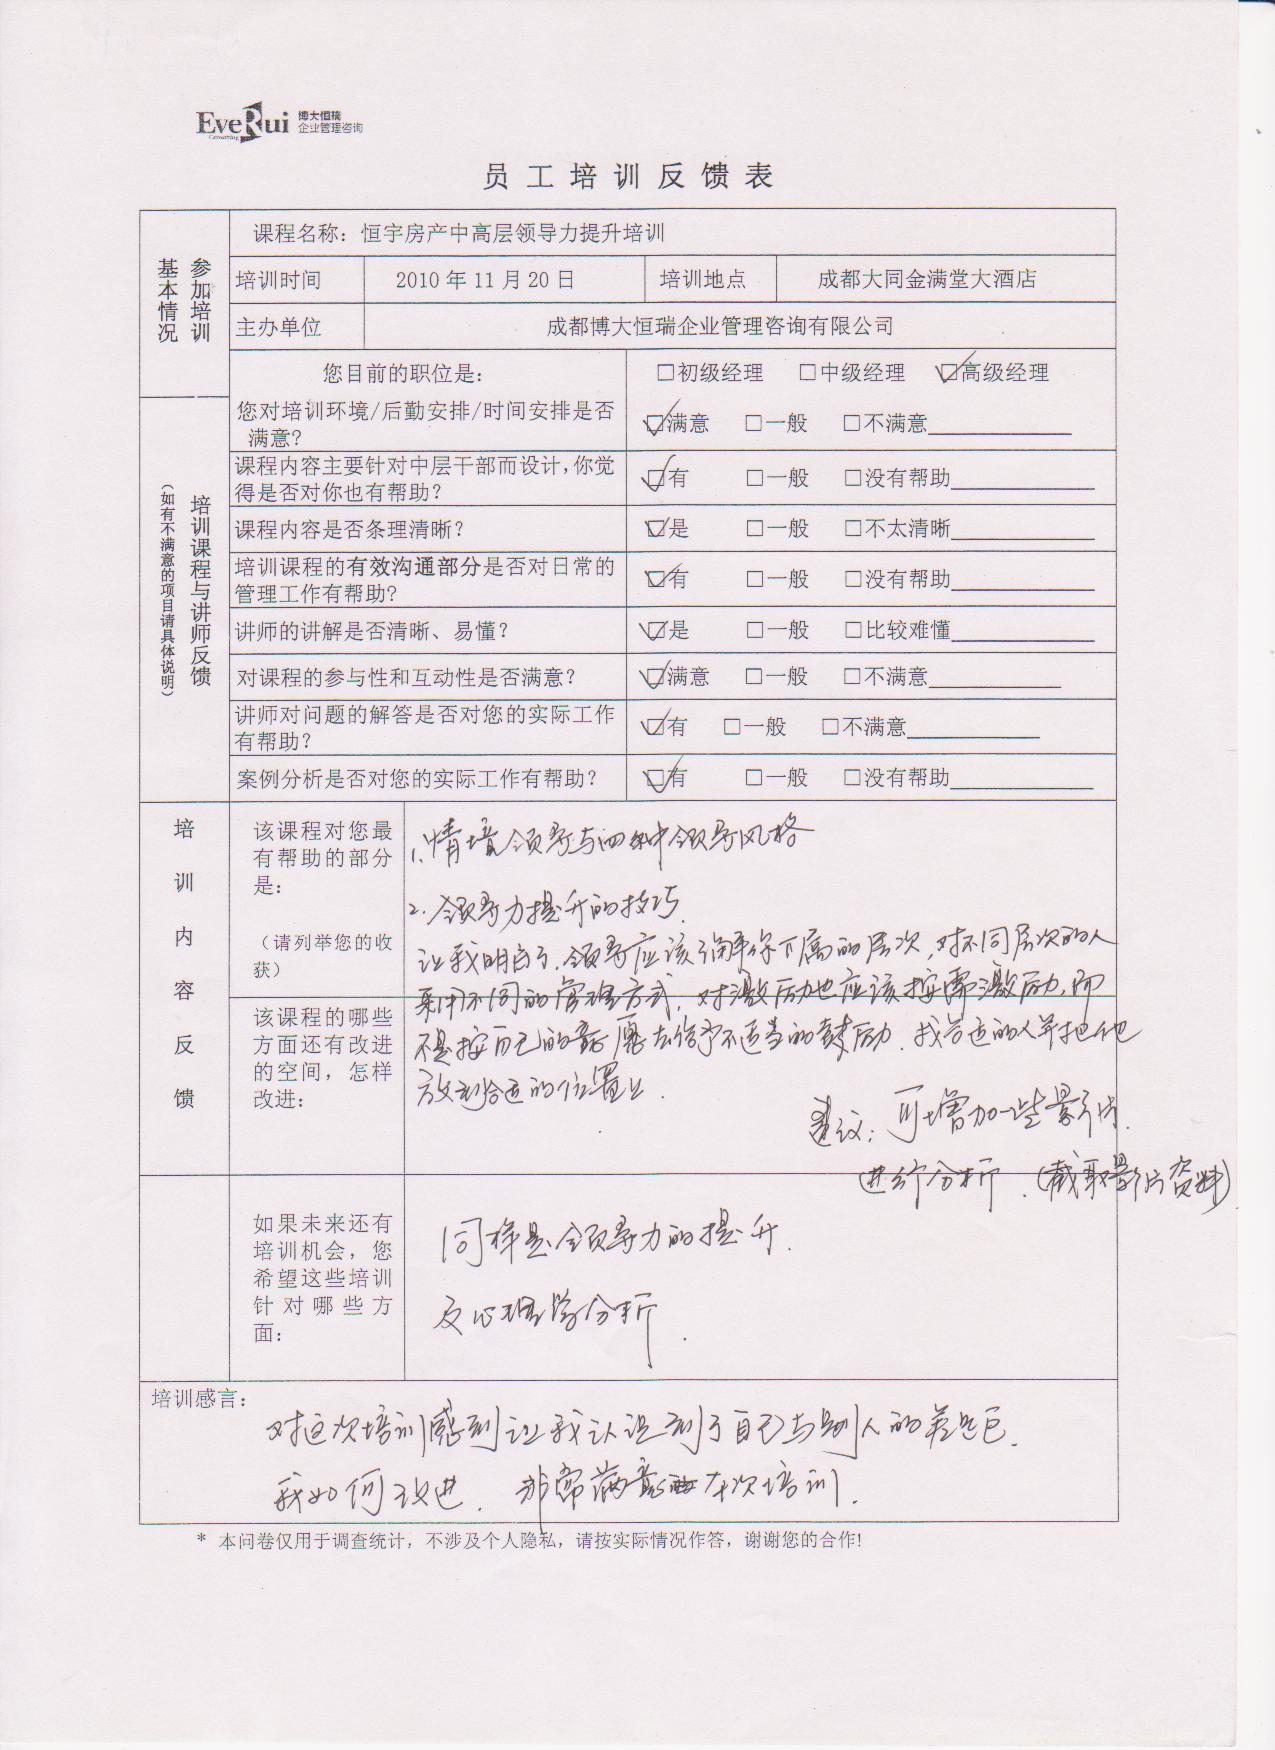 EveRui 博大恒瑞
Consulting 企业管理咨询
员工培训反馈表
参加培训
基本情况
课程名称：恒宇房产中高层领导力提升培训
培训时间 2010年11月20日 培训地点 成都大同金满堂大酒店
主办单位 成都博大恒瑞企业管理咨询有限公司
您目前的职位是： □初级经理 □中级经理 ☑高级经理
培训课程与讲师反馈
（如有不满意的项目请具体说明）
您对培训环境/后勤安排/时间安排是否 ☑满意 □一般 □不满意
满意?
课程内容主要针对中层干部而设计，你觉 ☑有 □一般 □没有帮助
得是否对你也有帮助？
课程内容是否条理清晰？ ☑是 □一般 □不太清晰
培训课程的有效沟通部分是否对日常的 ☑有 □一般 □没有帮助
管理工作有帮助?
讲师的讲解是否清晰、易懂？ ☑是 □一般 □比较难懂
对课程的参与性和互动性是否满意？ ☑满意 □一般 □不满意
讲师对问题的解答是否对您的实际工作 ☑有 □一般 □不满意
有帮助？
案例分析是否对您的实际工作有帮助？ ☑有 □一般 □没有帮助
培训内容反馈
该课程对您最
有帮助的部分
是：
（请列举您的收
获）
1、情境领导与四种领导风格
2．领导力提升的技巧．
让我明白了．领导应该了解你下属的层次，对不同层次的人
采用不同的管理方式．对激励也应该按需激励，而
不是按自己的意愿去给予不适当的鼓励．找合适的人并把他
放到合适的位置上．
该课程的哪些
方面还有改进
的空间，怎样
改进：
建议：可增加一些影片．
进行分析．（截取影片资料）
如果未来还有
培训机会，您
希望这些培训
针对哪些方
面：
同样是领导力的提升．
及心理学分析．
培训感言：
对这次培训感到让我认识到了自己与别人的差距．
我如何改进．非常满意本次培训．
* 本问卷仅用于调查统计，不涉及个人隐私，请按实际情况作答，谢谢您的合作!